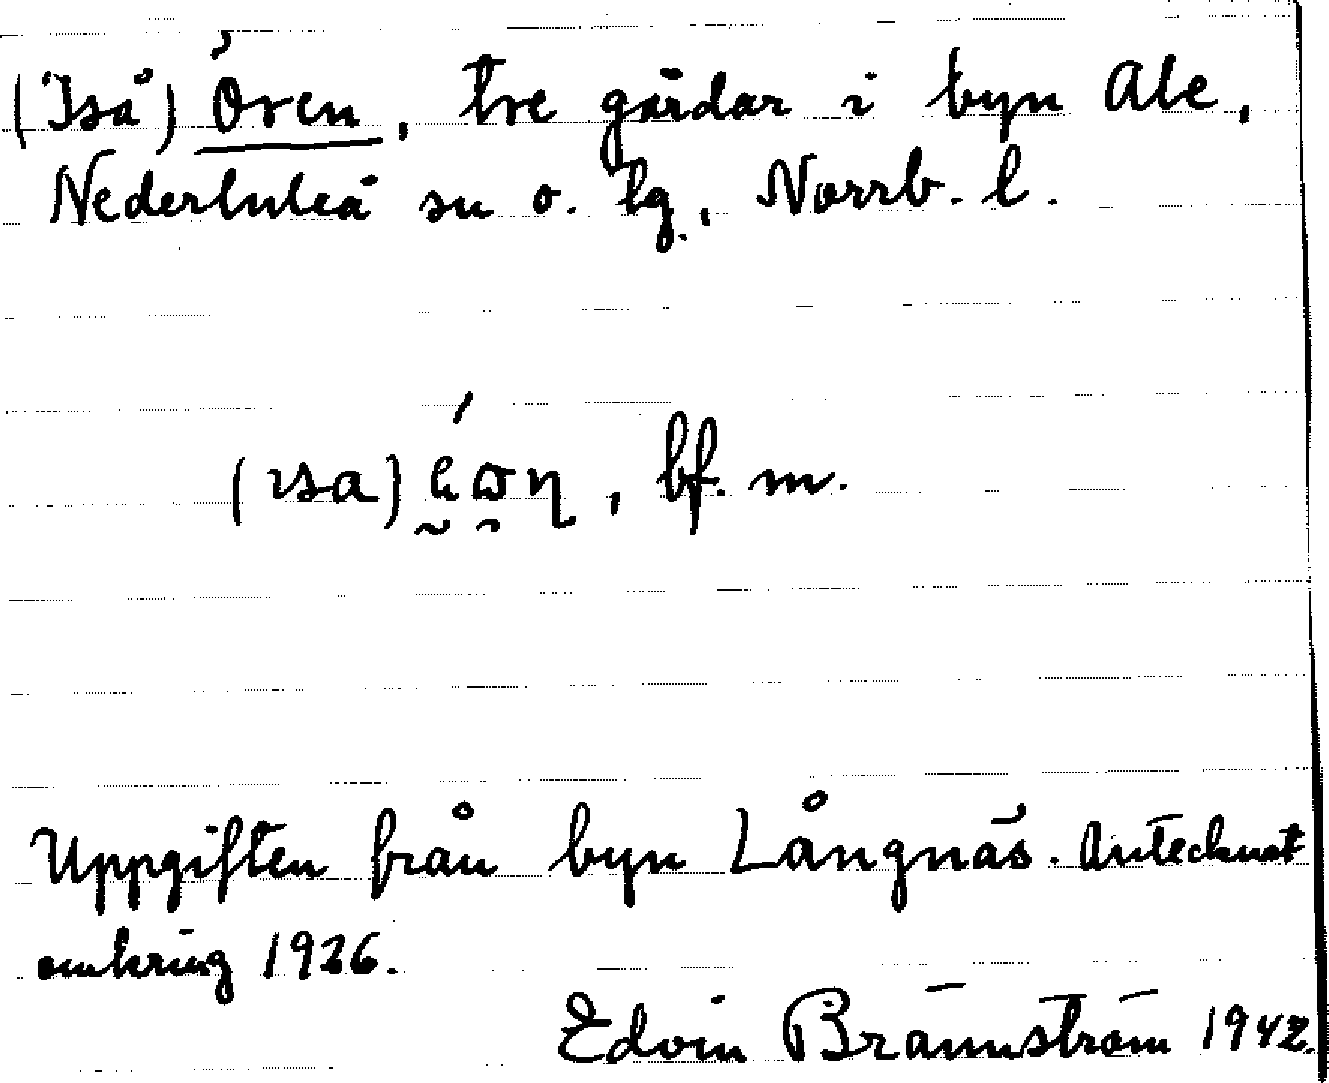 (Iså) Ören, tre gårdar i byn Ale,
Nederluleå sn o. lg., Norrb. l.
(ɪsa) , bf. m.
Uppgiften från byn Långnäs. Antecknat
omkring 1926.
Edvin Brännström 1942.